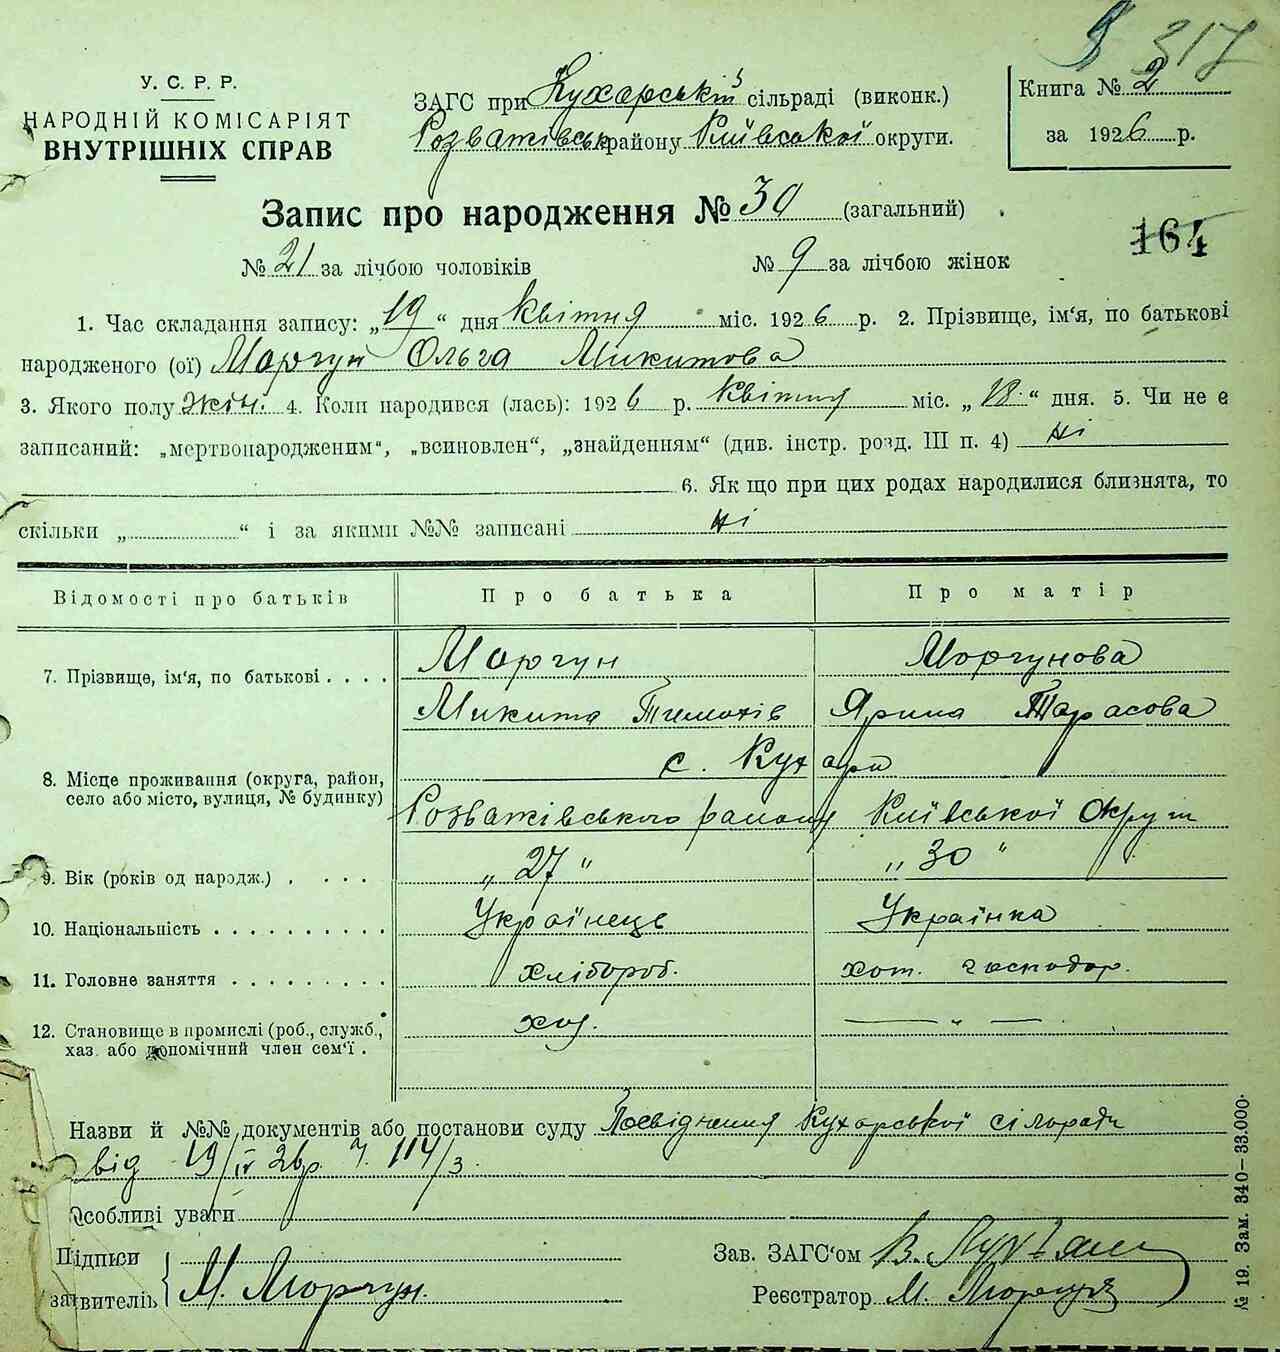 317
У. С. Р. Р.
НАРОДНІЙ КОМІСАРІЯТ
ВНУТРІШНІХ СПРАВ
ЗАГС при Кухарській сільраді (виконк.)
Розважівськ району Київської округи.
Книга № 2
за 1926 р.
Запис про народження № 30 (загальний)
164
№ 21 за лічбою чоловіків № 9 за лічбою жінок
1. Час складання запису: „19“ дня квітня міс. 1926 р. 2. Прізвище, ім‘я, по батькові
народженого (ої) Моргун Ольга Микитова
3. Якого полу жін. 4. Коли народився (лась): 1926 р. квітня міс. „18.“ дня. 5. Чи не є
записаний: „мертвонародженим“, „всиновлен“, „знайденям“ (див. інстр. розд. III п. 4) ні
6. Як що при цих родах народилися близнята, то
скільки „ “ і за якими №№ записані ні
Відомості про батьків Про батька Про матір
7. Прізвище, ім‘я, по батькові Моргун Моргунова
Микита Тимохів Ярина Тарасова
8. Місце проживання (округа, район, село або місто, вулиця, № будинку) с. Кухари
Розважівського району Київської Округи
9. Вік (років од народж.) „27“ „30“
10. Національність Українець Українка
11. Головне заняття хлібороб. хот. господар.
12. Становище в промислі (роб., служб., хаз. або допомічний член сем‘ї.
Назви й №№ документів або постанови суду Посвідчення Кухарської сільради
від 19/IV 26р. ч. 114/3.
Особливі уваги
Підписи
заявителів М. Моргун.
Зав. ЗАГС‘ом
Реєстратор М.
№ 19. Зам. 340–33.000.